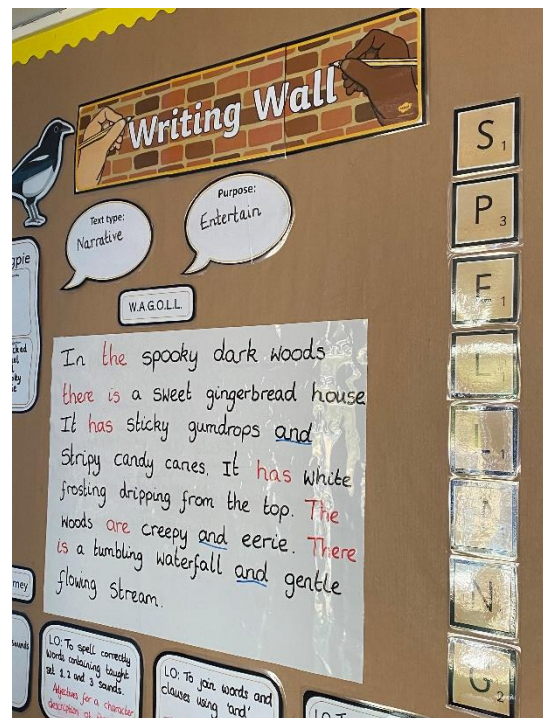 Writing Wall
Text type:
Narrative
Purpose:
Entertain
W.A.G.O.L.L.
In the spooky dark woods
there is a sweet gingerbread house
It has sticky gumdrops and
stripy candy canes. It has white
frosting dripping from the top. The
woods are creepy and eerie. There
is a tumbling waterfall and gentle
flowing stream.
LO: To spell correctly
words containing taught
set 1 2 and 3 sounds.
Adjectives for a character
LO: To join words and
clauses using 'and'
S 1
P 3
E 1
L 1
L 1
I
N
G 2